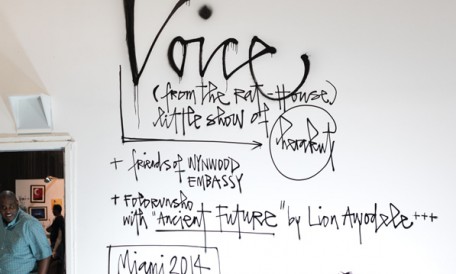 Voice
(from the rat-House)
little show of Herakut
+ friends of WYNWOOD
EMBASSY
with "Ancient Future" by Lion Ayodele +++
Miami 2014